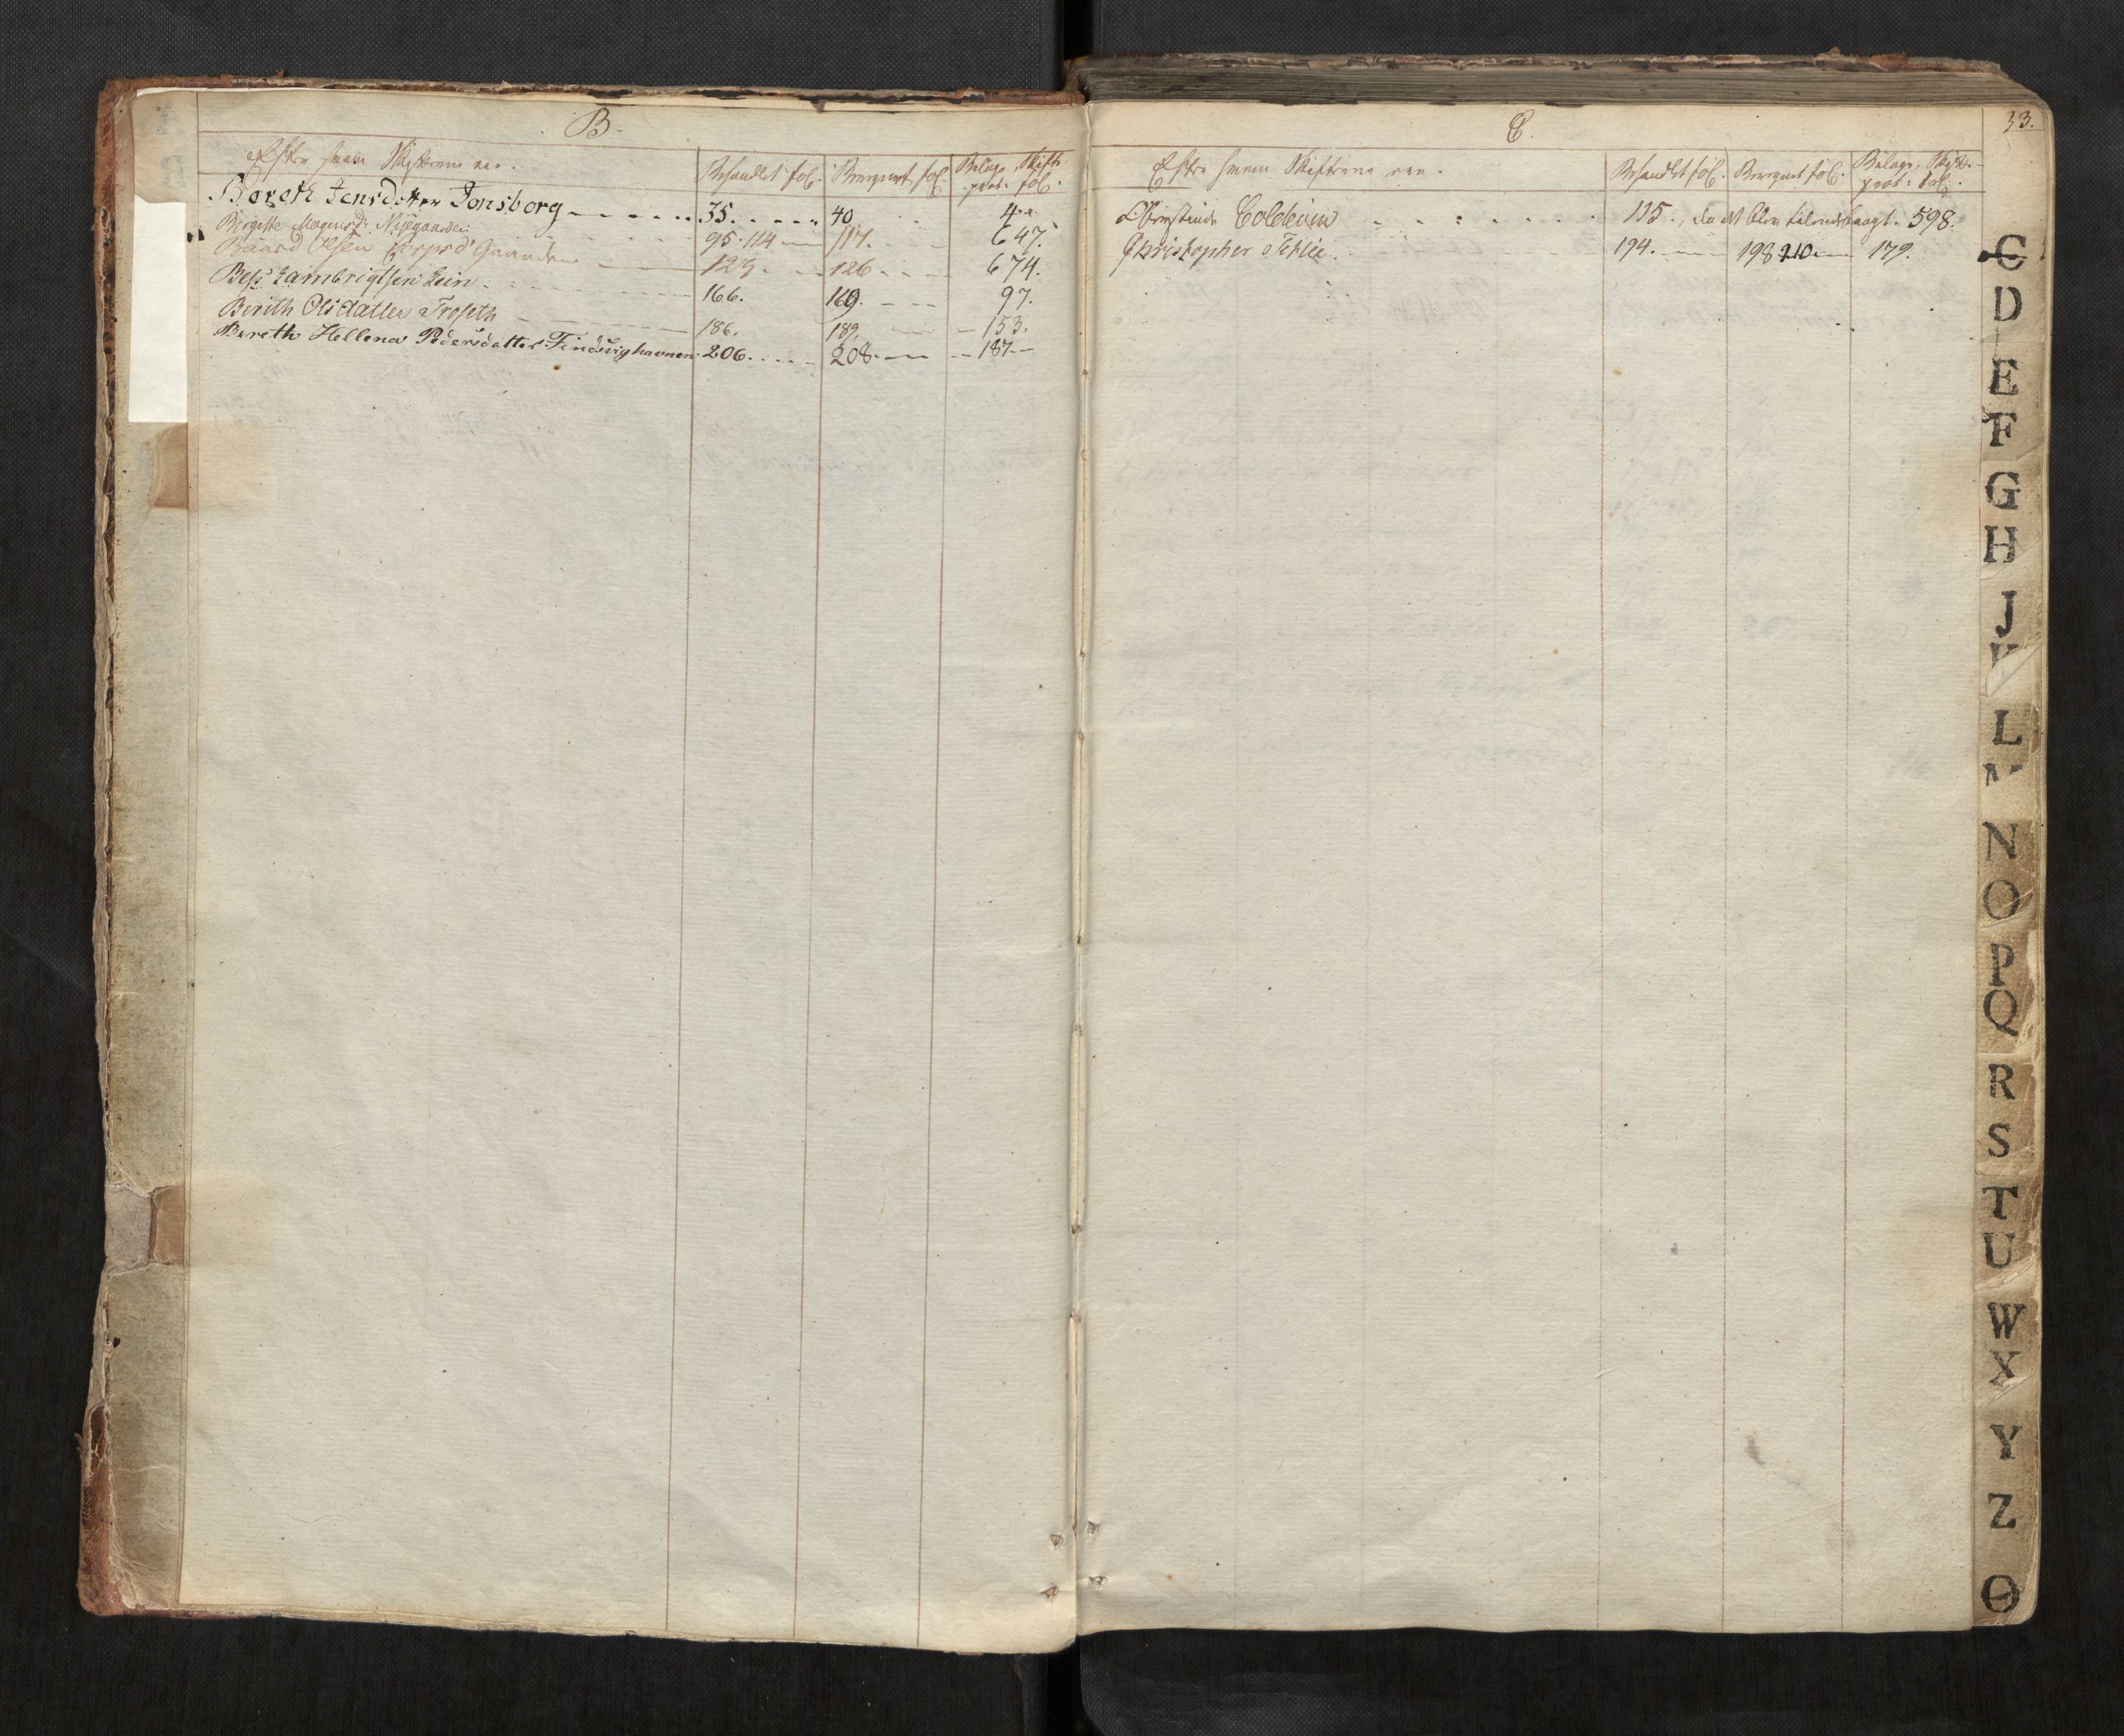 B.
Efter hvem Skifterne ere.
Behandlet fol. Beregnet fol. Bilage, Skifte-
prot: fol:
Bereth Jensdotter Jonsborg 35. 40 4
Birgitte Magnusd: Nisjegaarden 95. 114 117. 647.
Baard Olsen Gaarden 123. 126 674.
Lambrigtsen Lein 166. 169. 97.
Berith Olsdatter Troseth 186. 189. 153.
Bereth Hellena Pedersdatter Findsvighavnen 206. 208. 187.
33.
C.
Efter hvem Skifterne ere.
Behandlet fol. Beregnet fol. Bilage, Skifte-
prot: fol.
Obrestinde Coldevin 115., da det blev tilendebragt. 598.
Christopher Schlie. 194. 198 210. 179.
C
D
E
F
G
H
J
L
N
O
P
Q
R
S
T
U
W
X
Y
Z
Ø